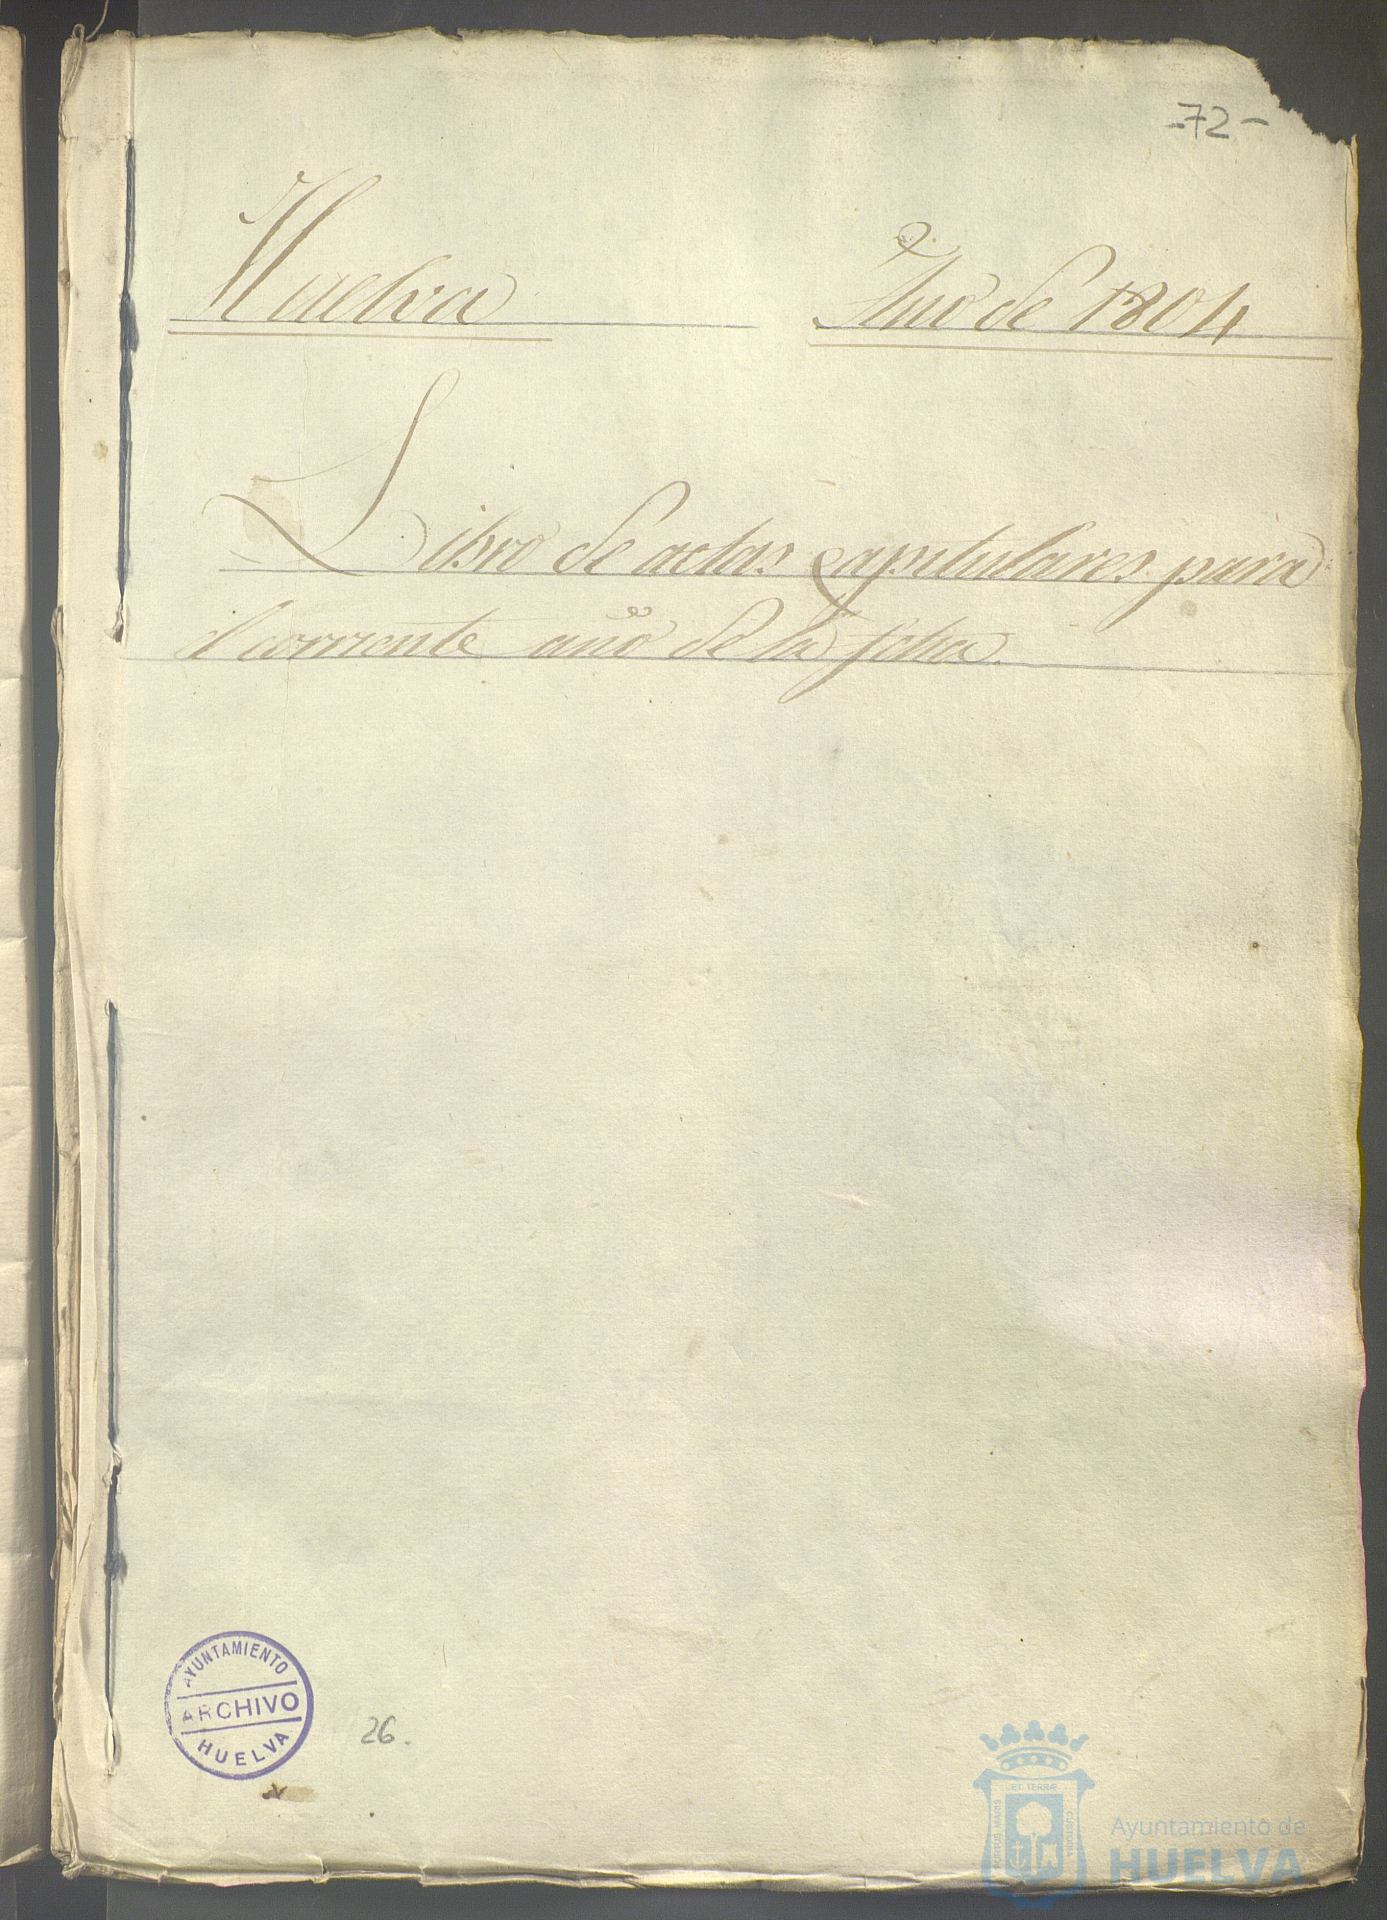 -72-
Huelva Año de 1804
Libro de actas capitulares para
el corriente año de la fecha.
AYUNTAMIENTO
ARCHIVO
HUELVA
26.
Ayuntamiento de
HUELVA